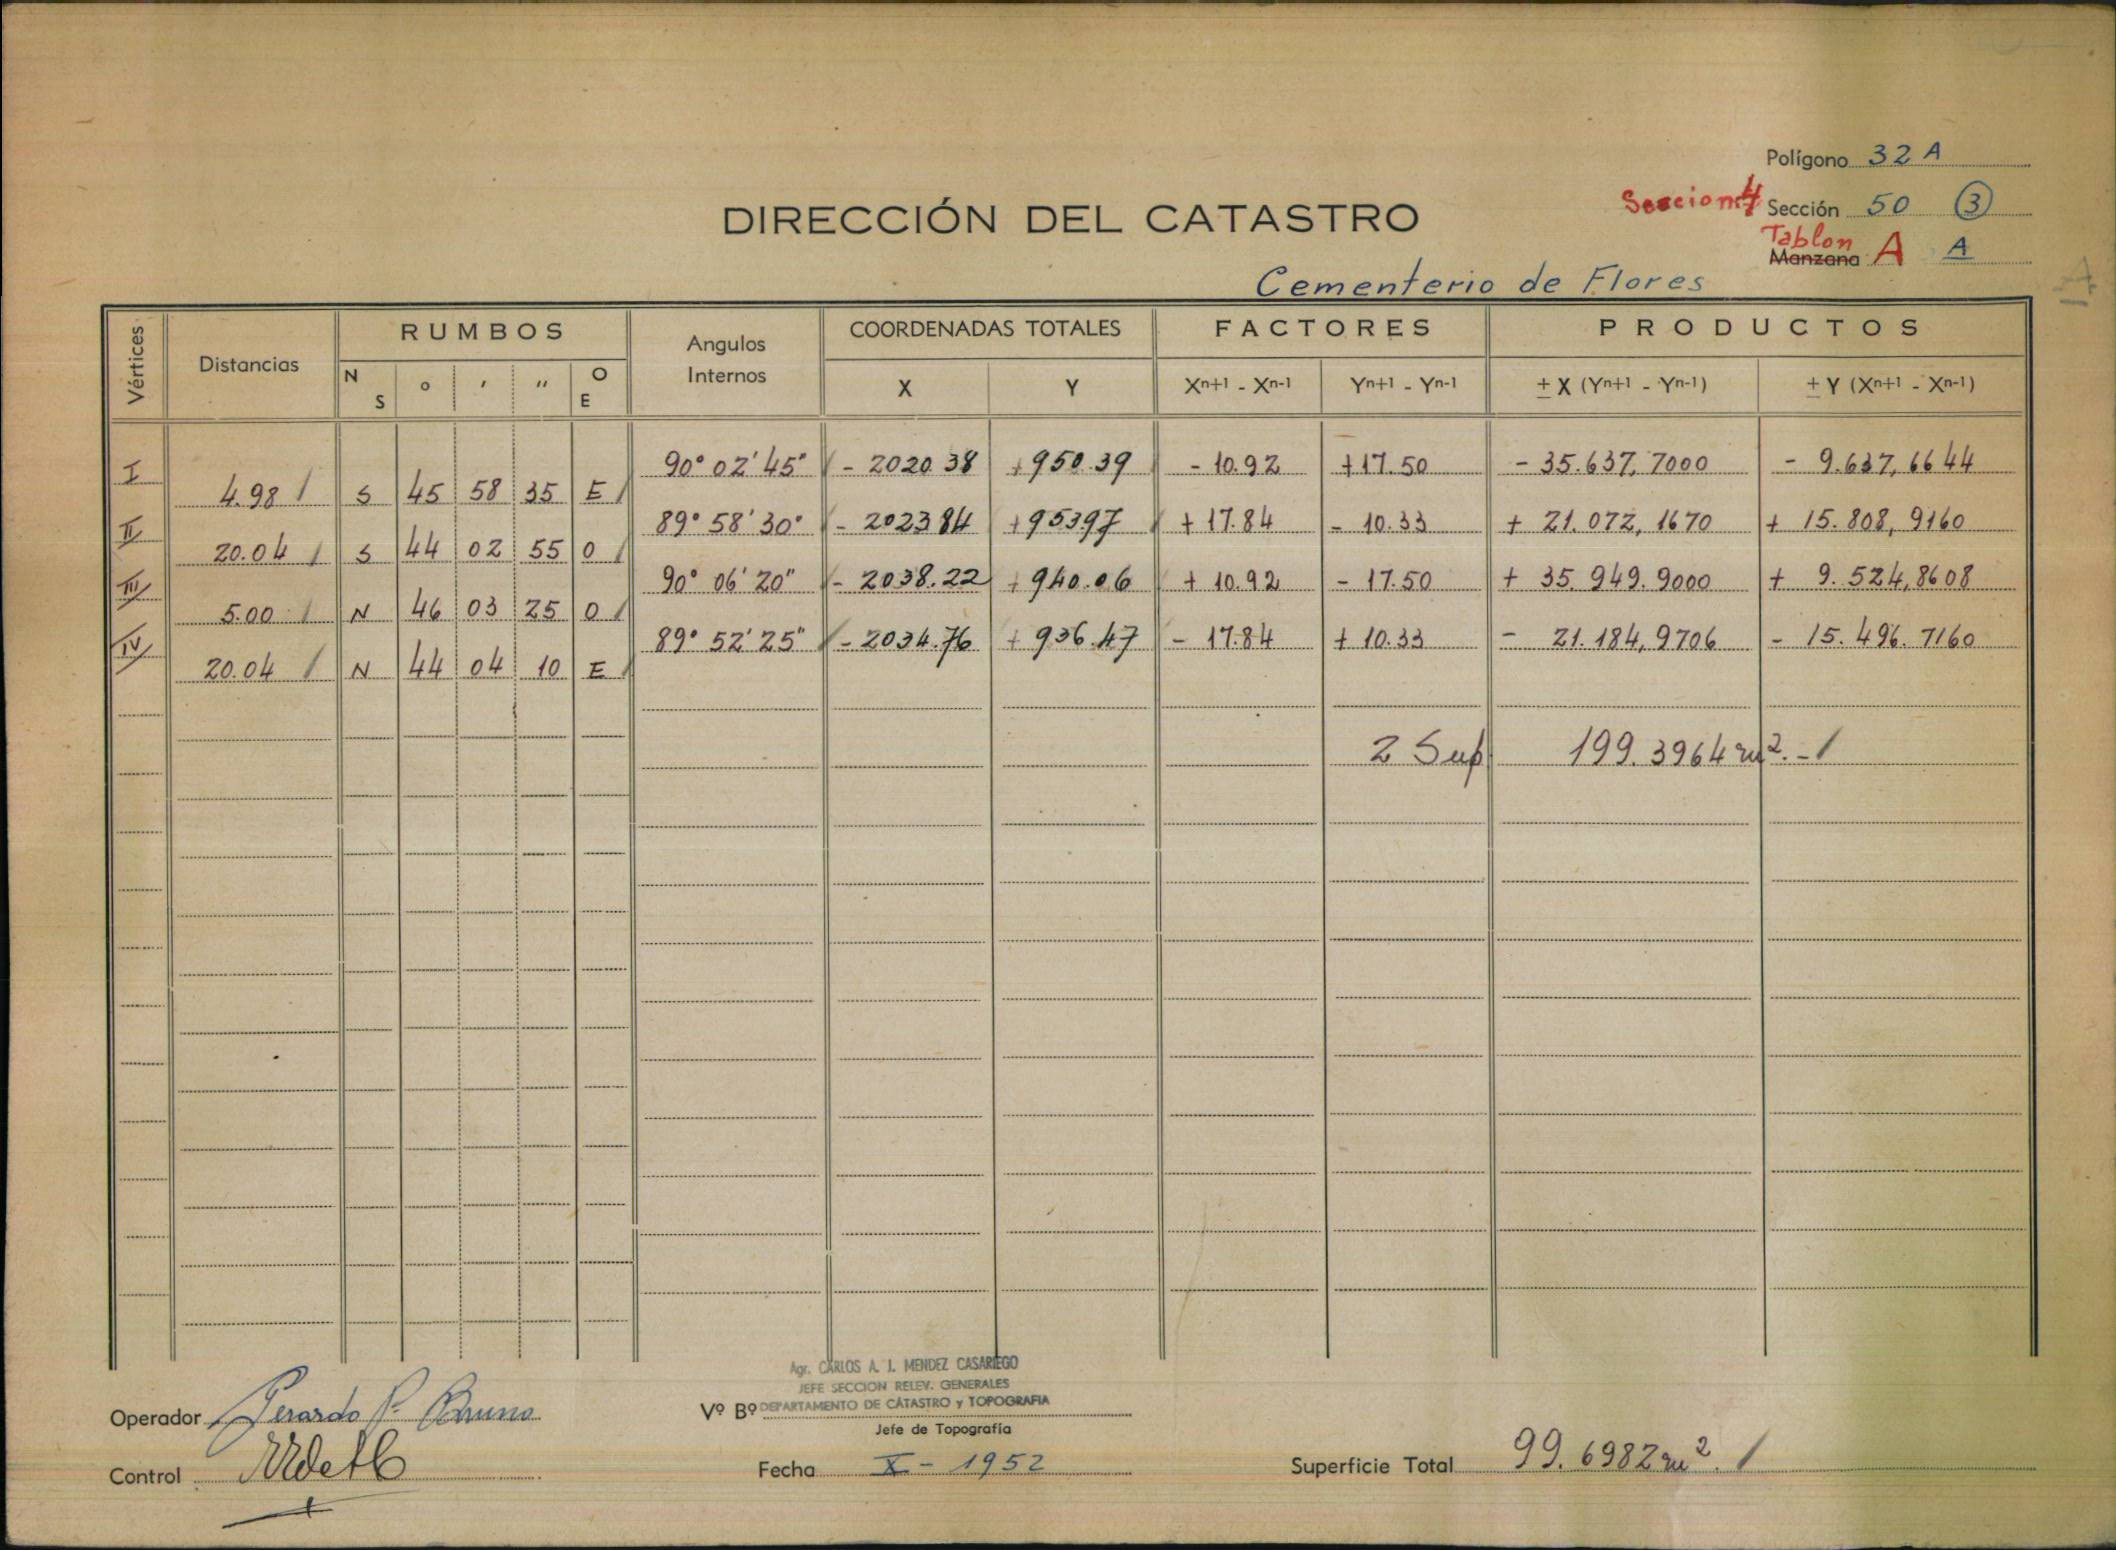 Polígono 32 A
Seccion 4 Sección 50 3
DIRECCIÓN DEL CATASTRO
Tablon
Manzana A A
Cementerio de Flores
Vértices Distancias RUMBOS Angulos Internos COORDENADAS TOTALES FACTORES PRODUCTOS
N S ° ′ ″ O E X Y Xn+1 - Xn-1 Yn+1 - Yn-1 ± X (Yn+1 - Yn-1) ± Y (Xn+1 - Xn-1)
I 90° 02' 45" - 2020.38 + 950.39 - 10.92 + 17.50 - 35.637,7000 - 9.637,6644
4.98 S 45 58 35 E
II 89° 58' 30" - 2023 84 + 953 97 + 17.84 - 10.33 + 21.072,1670 + 15.808,9160
20.04 S 44 02 55 O
III 90° 06' 20" - 2038.22 + 940.06 + 10.92 - 17.50 + 35.949.9000 + 9.524,8608
5.00 N 46 03 25 O
IV 89° 52' 25" - 2034.76 + 936.47 - 17.84 + 10.33 - 21.184,9706 - 15.496.7160
20.04 N 44 04 10 E
2 Sup. 199.3964 m². -
Agr. CARLOS A. I. MENDEZ CASARIEGO
JEFE SECCION RELEV. GENERALES
DEPARTAMENTO DE CATASTRO y TOPOGRAFIA
Operador Gerardo P. Bruno Vº Bº
Jefe de Topografía
Control Fecha X - 1952 Superficie Total 99.6982 m².